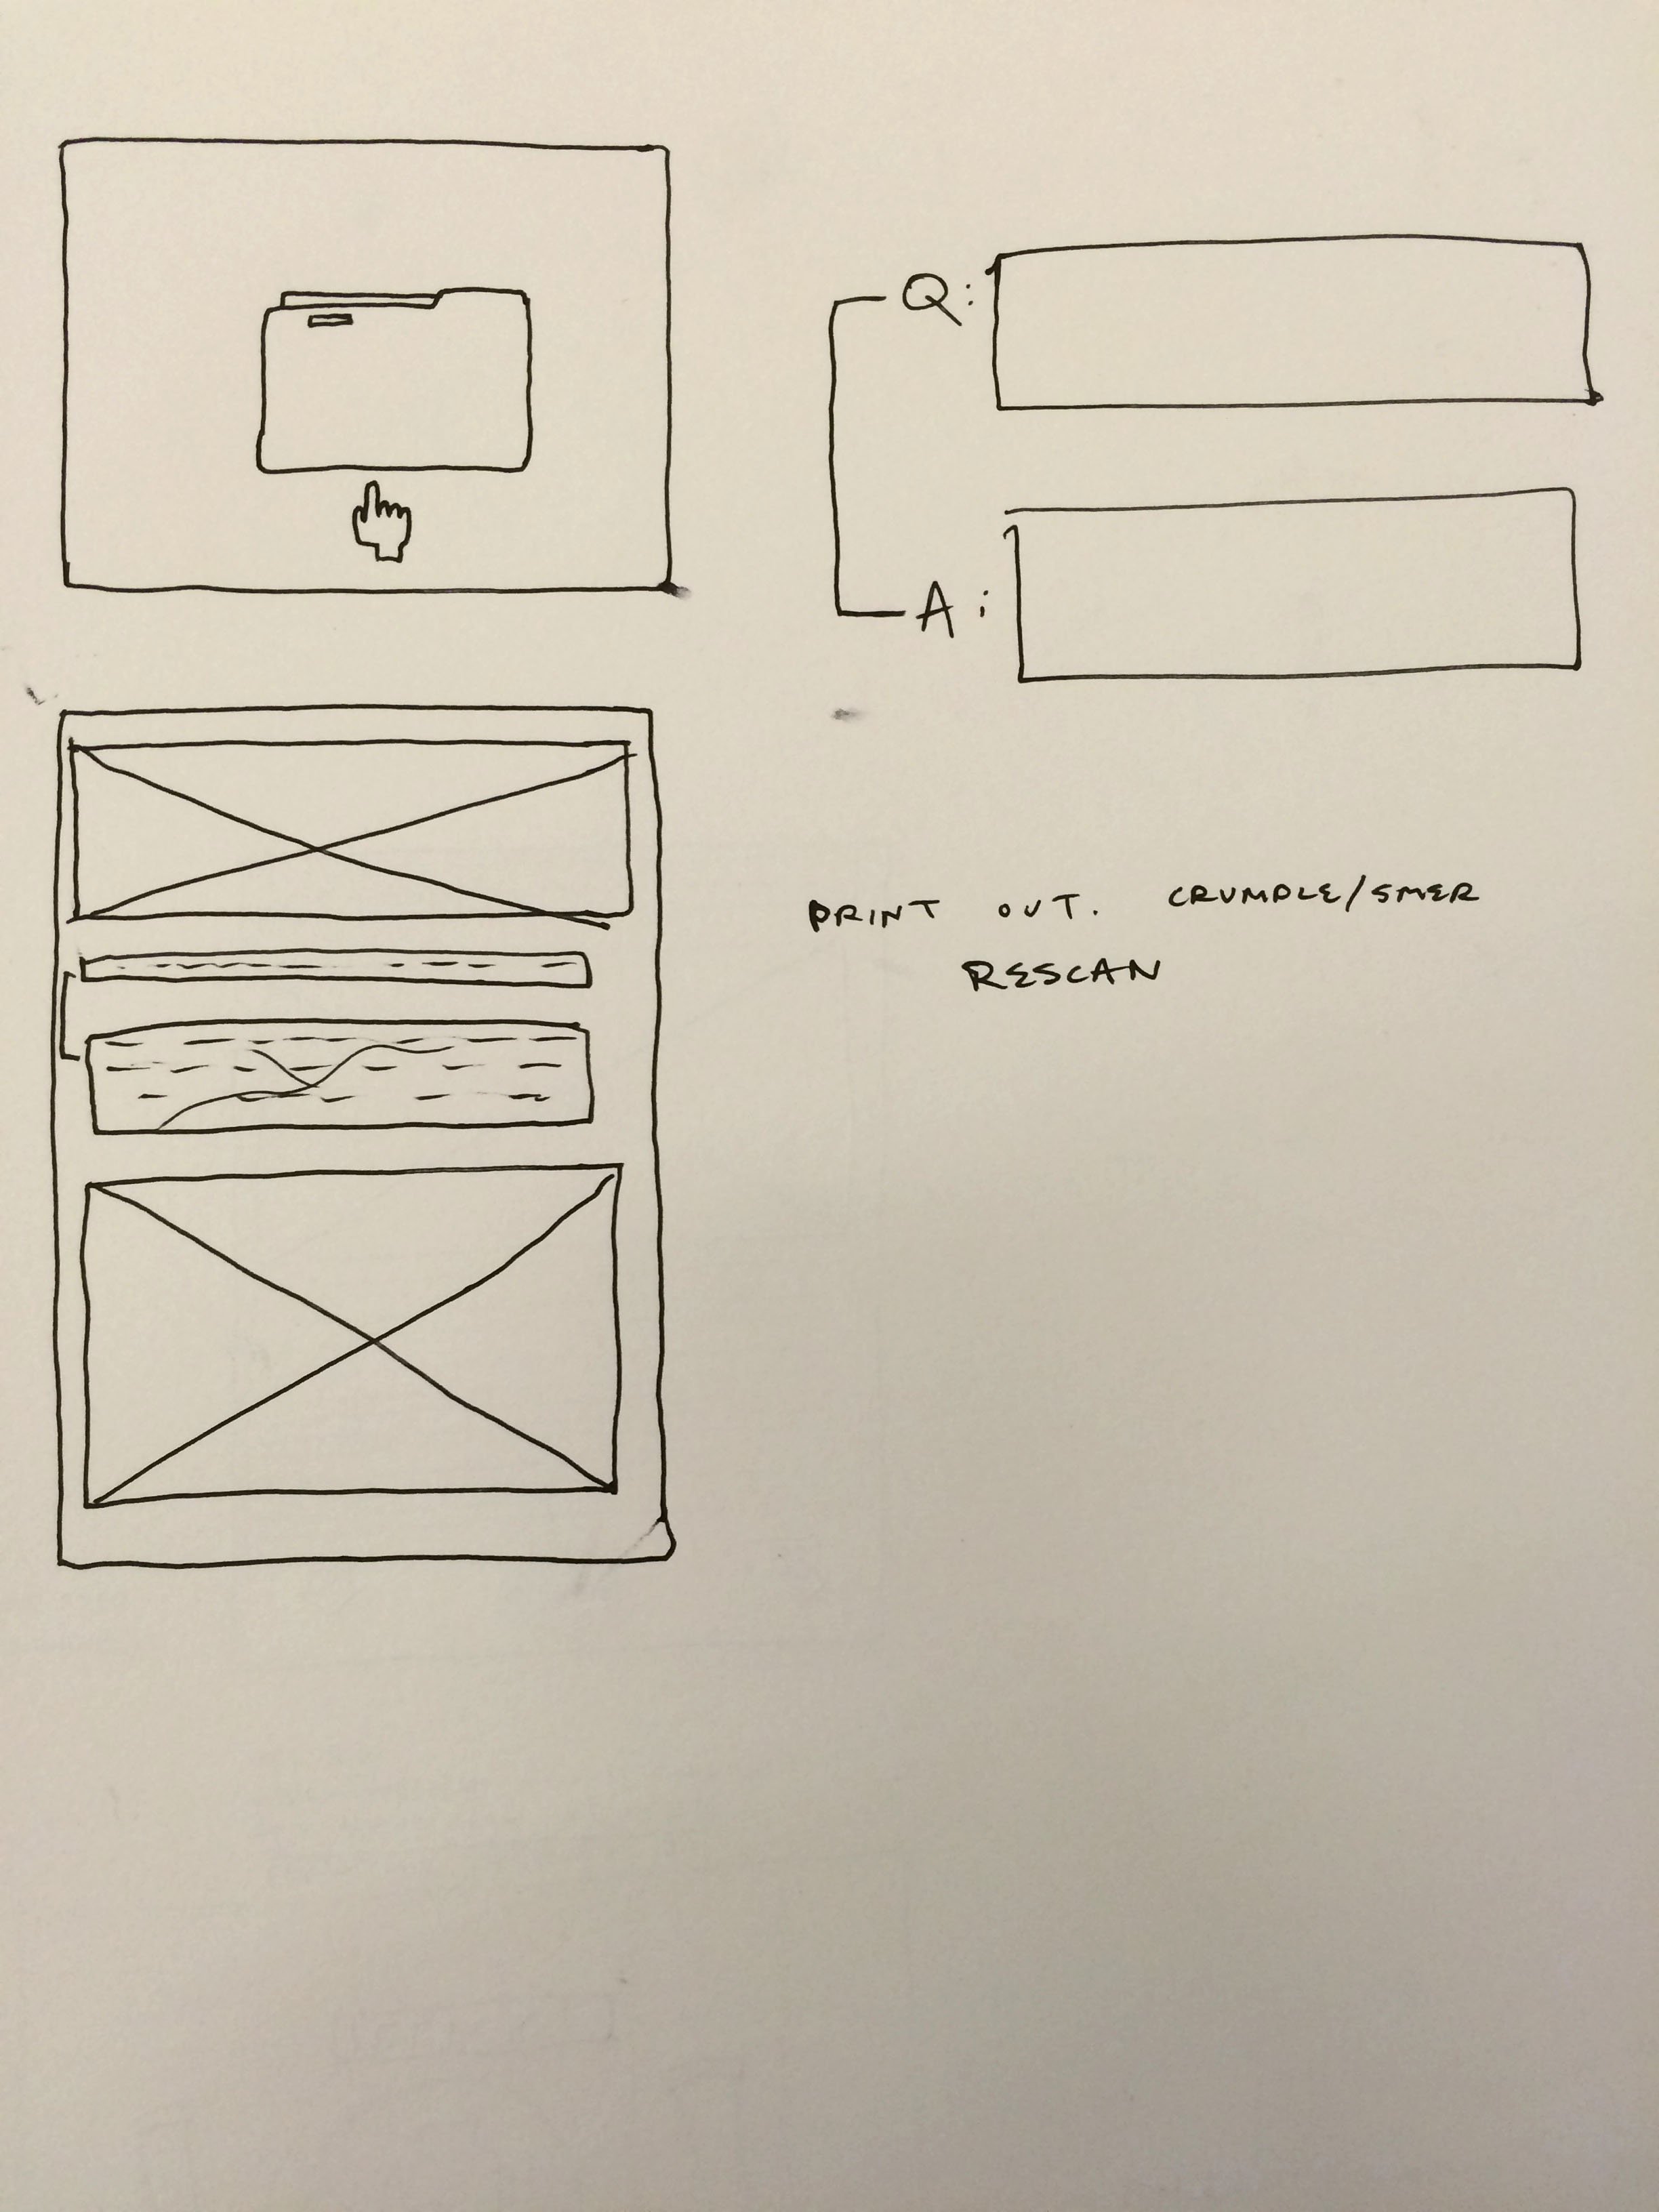 Q:
A:
PRINT OUT. CRUMPLE/SMER
RESCAN